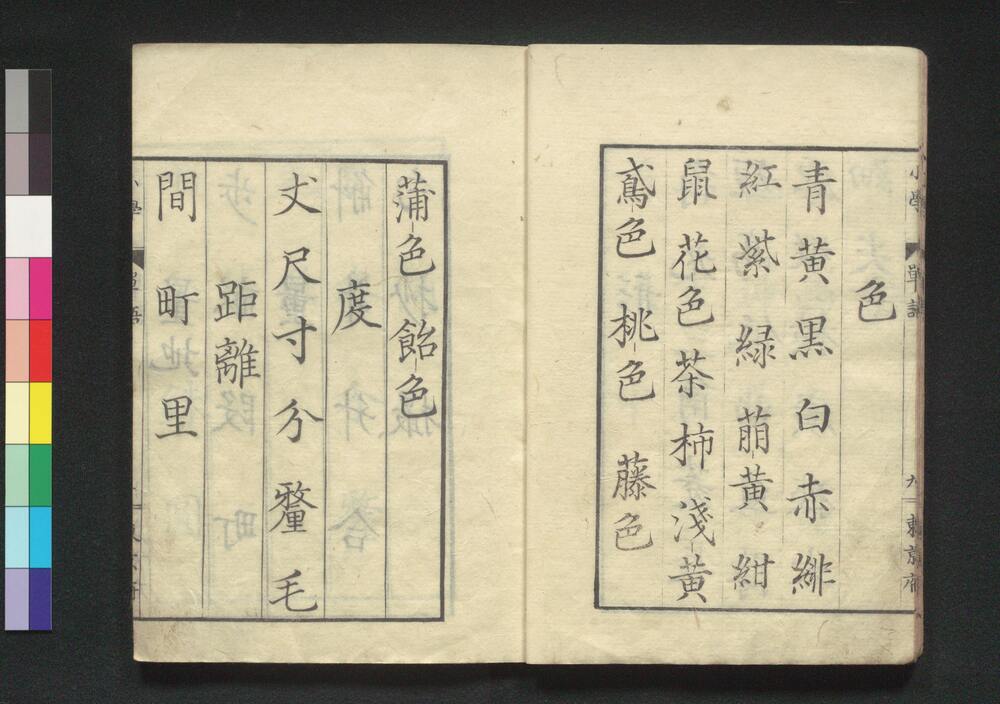 小學
單語
九
色
青 黄 黒 白 赤 緋
紅 紫 緑 萠黄 紺
鼠 花色 茶 柿 淺黄
鳶色 桃色 藤色
蒲色 飴色
度
丈 尺 寸 分 釐 毛
距離
間 町 里